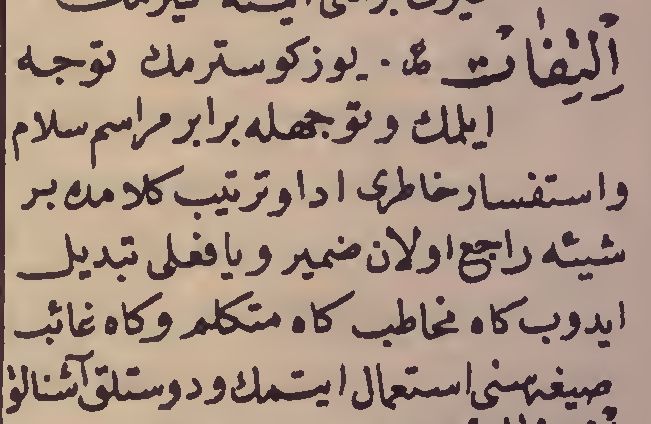 اِلْتِفَاتْ يوز كوسترمك توجه
ايلمك و توجهله برابر مراسم سلام
و استفسار خاطرى ادا و ترتيب كلامده بر
شيئه راجع اولان ضمير و يا فعلى تبديل
ايدوب كاه مخاطب كاه متكلم و كاه غائب
صيغه سنى استعمال ايتمك و دوستلق آشنالق